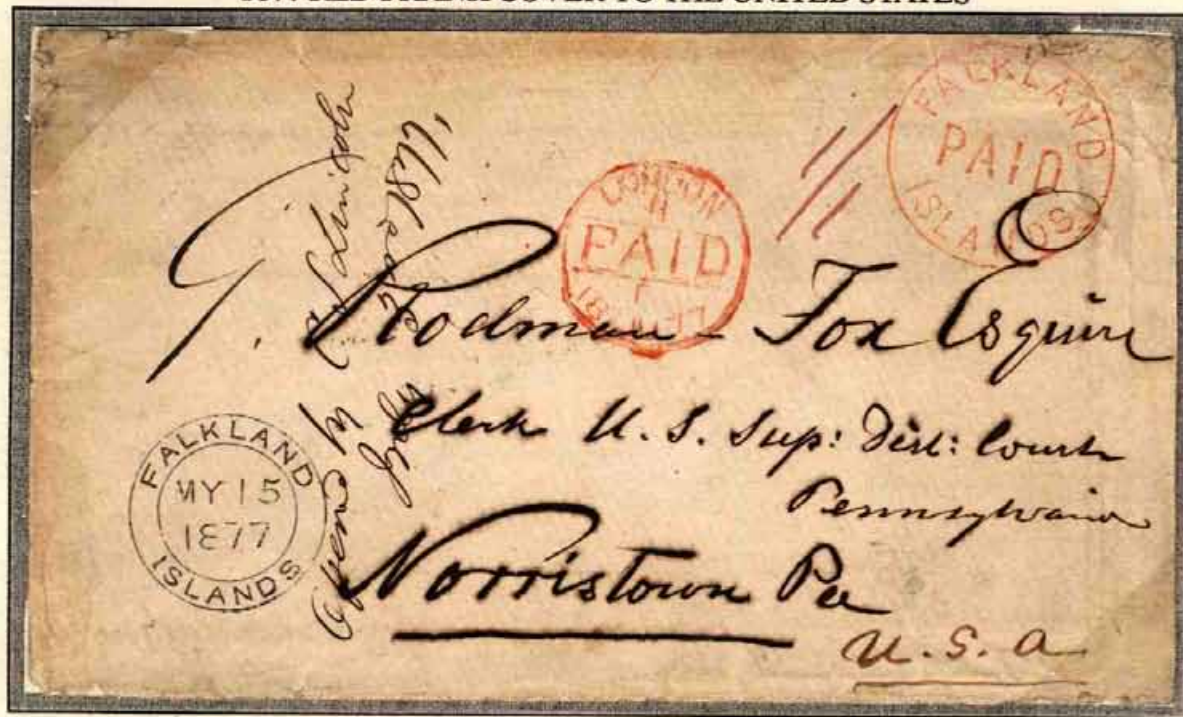 COVER TO THE UNITED STATES
FALKLAND
PAID
ISLANDS
1/1
LONDON
PAID
Rodman Fox Esquire
Clerk U. S. Sup: Dist: Court
Pennsylvania
Norristown Pa
U. S. A
FALKLAND
MY 15
1877
ISLANDS
Opened by